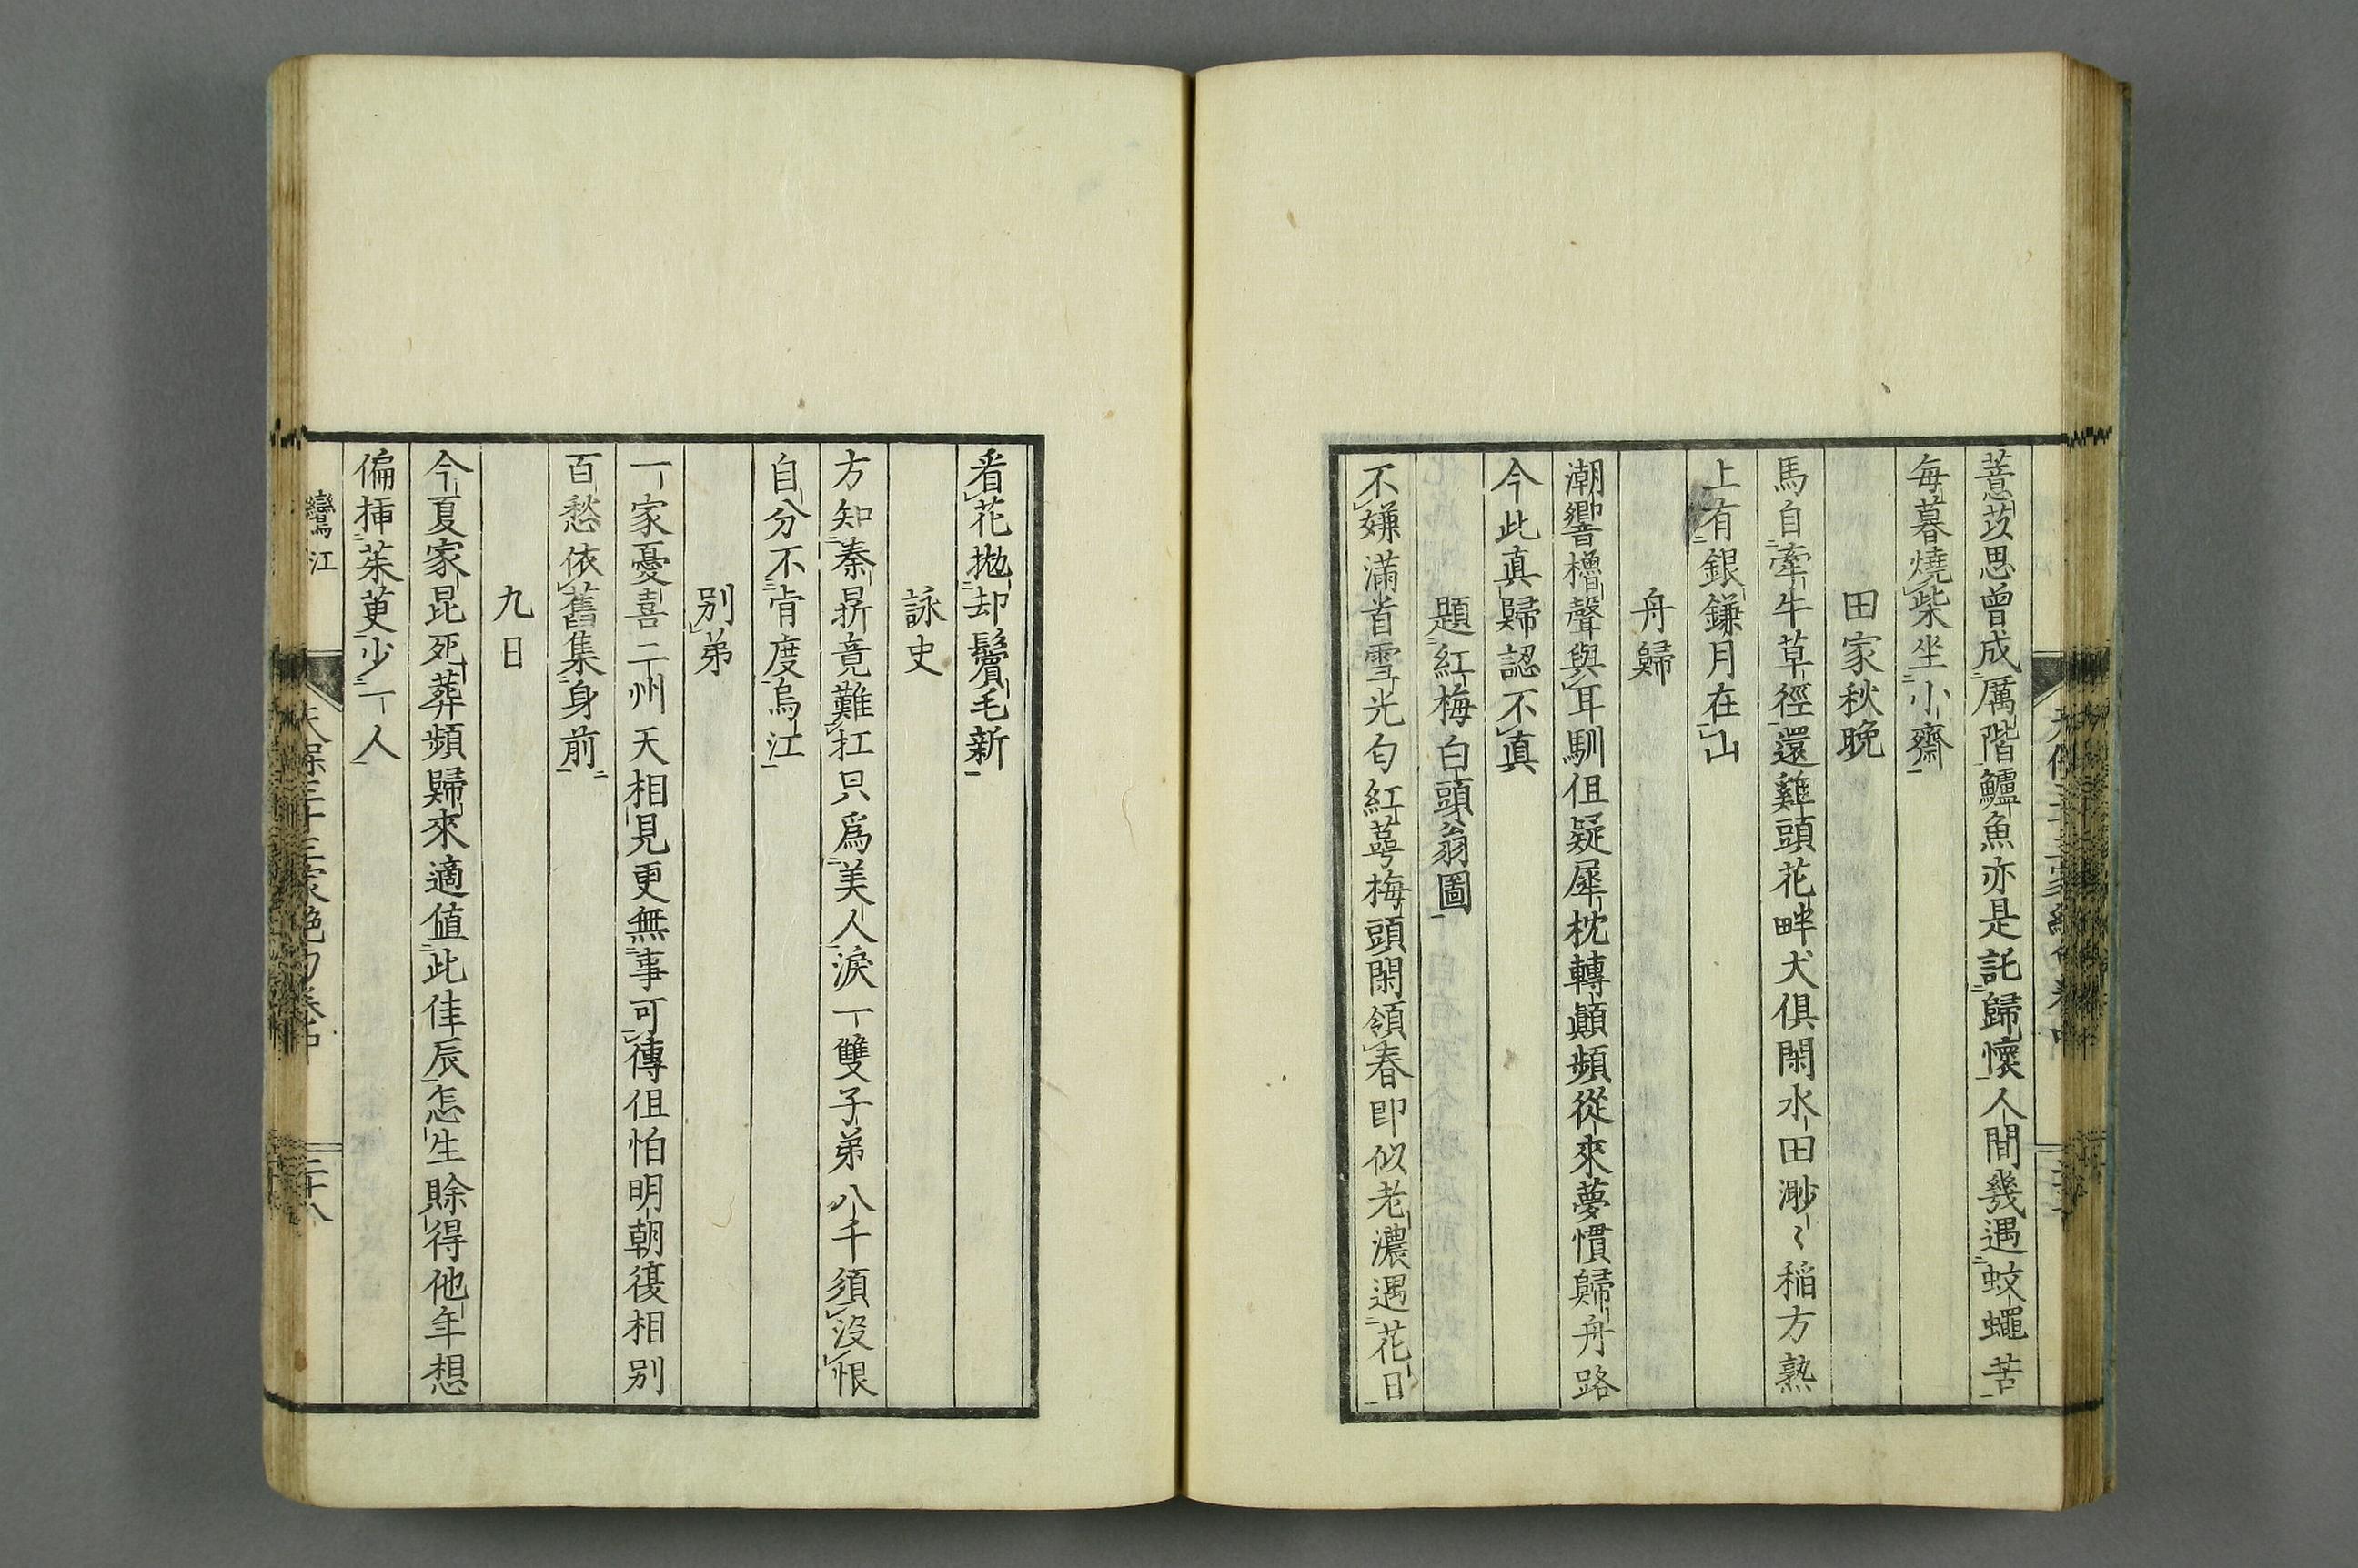 薏苡思曾成厲階鱸魚亦是託歸懷人間幾遇蚊蠅苦
毎暮燒柴坐小齋
田家秋晚
馬自牽牛草徑還雞頭花畔犬俱閑水田渺〻稲方熟
上有銀鎌月在山
舟歸
潮響櫓聲與耳馴但疑犀枕轉顛頻從來夢慣歸舟路
今此真歸認不真
題紅梅白頭翁圖
不嫌滿首雪光匀紅萼梅頭閑領春即似老濃遇花日
看花拋却鬢毛新
詠史
方知秦鼎竟難扛只爲美人淚一雙子弟八千須没恨
自分不肯度烏江
别弟
一家憂喜二州天相見更無事可傳但怕明朝復相别
百愁依舊集身前
九日
今夏家昆死葬頻歸來適值此佳辰怎生賖得他年想
偏挿茱萸少一人
鸞江
天保三十三家絶句卷中
二十八